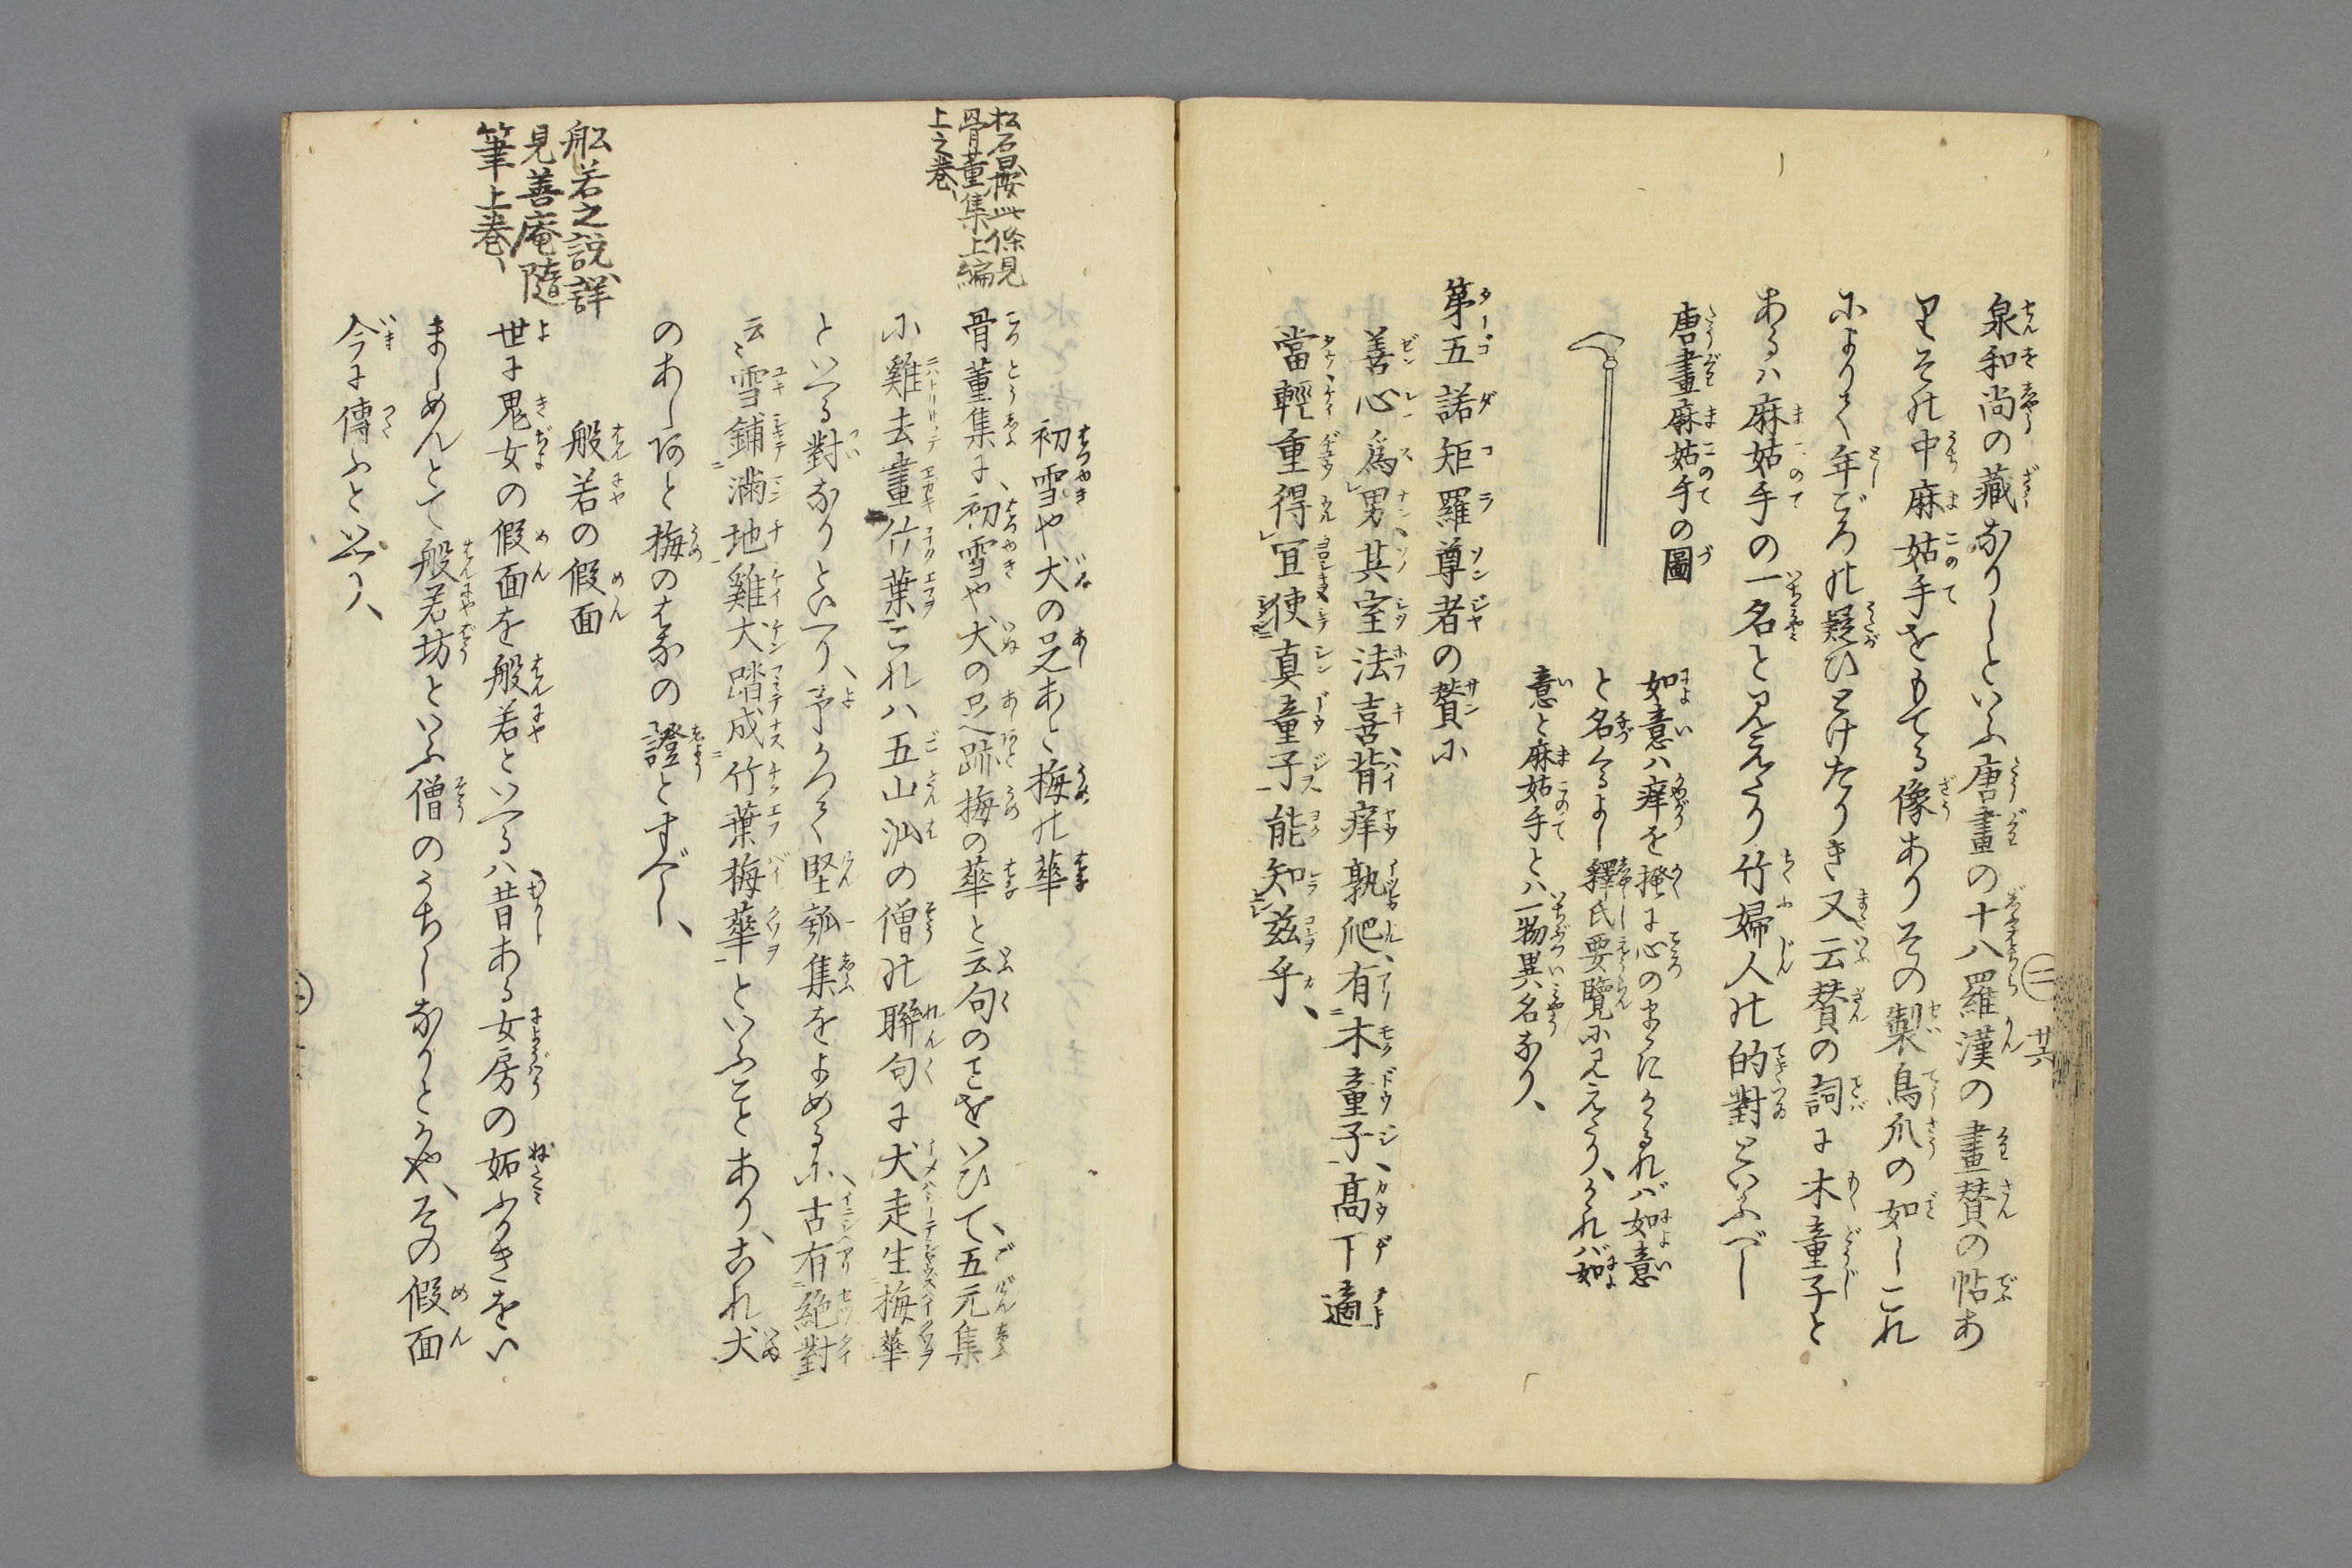 泉和尚の藏なりしといふ唐畫の十八羅漢の畫賛の帖あ
りその中麻姑手をもてる像ありその製鳥爪の如しこれ
によりて年ごろの疑ひとけたりき又云賛の詞に木童子と
あるハ麻姑手の一名と見えたり竹婦人の的對といふべし
唐畫麻姑手の圖
如意ハ痒を掻に心のまゝにかるれバ如意
と名くるよし釋氏要覽に見えたり、かれバ如
意と麻姑手とハ一物異名なり、
第五諾矩羅尊者の賛に
善心爲男、其室法喜、背痒孰爬、有木童子、高下適
當輕重得冝使真童子能知茲乎、
廿六
初雪や犬の足あと梅の華
骨董集に、初雪や犬の足跡梅の華と云句のことをいひて、五元集
に雞去畫竹葉これハ五山の僧の聯句に犬走生梅華
といへる對なりといへり、予かつて堅瓠集をよめるに、古有絶對
云〻雪鋪滿地雞犬踏成竹葉梅華といふことあり、これ犬
のあしあと梅のはなの證とすべし、
般若の假面
世に鬼女の假面を般若といへるハ昔ある女房の妬ふかきをい
ましめんとて般若坊といふ僧のうちしなりとかや、その假面
今に傳ふと
松石晏按此條見
骨董集上編
上之巻、
般若之説詳
見善庵隨
筆上巻、